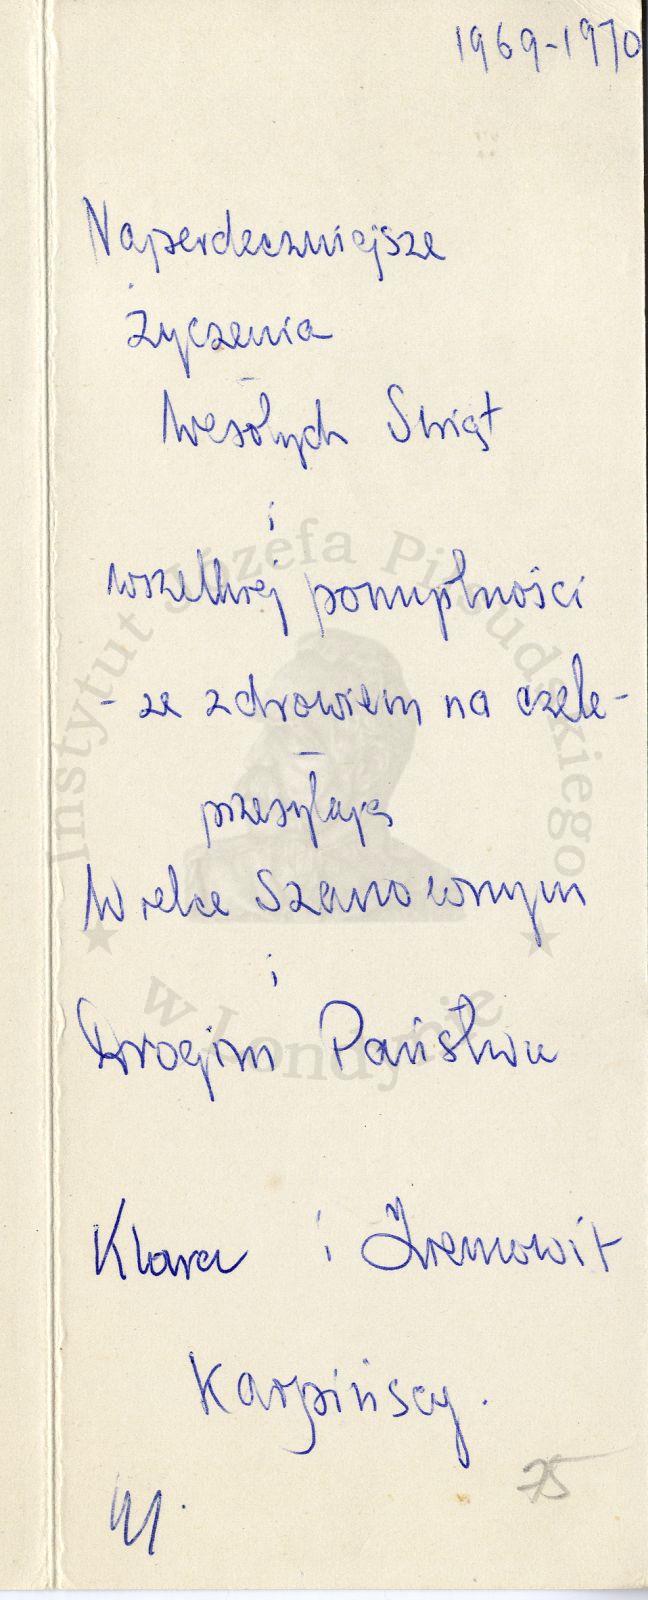 1969-1970
Najserdeczniejsze
życzenia
Wesołych Świąt
i
wszelkiej pomyślności
- ze zdrowiem na czele -
przesyłają
Wielce Szanownym
i
Drogim Państwu
Klara i Ziemowit
Karpińscy.
75
Instytut Józefa Piłsudskiego
w Londynie